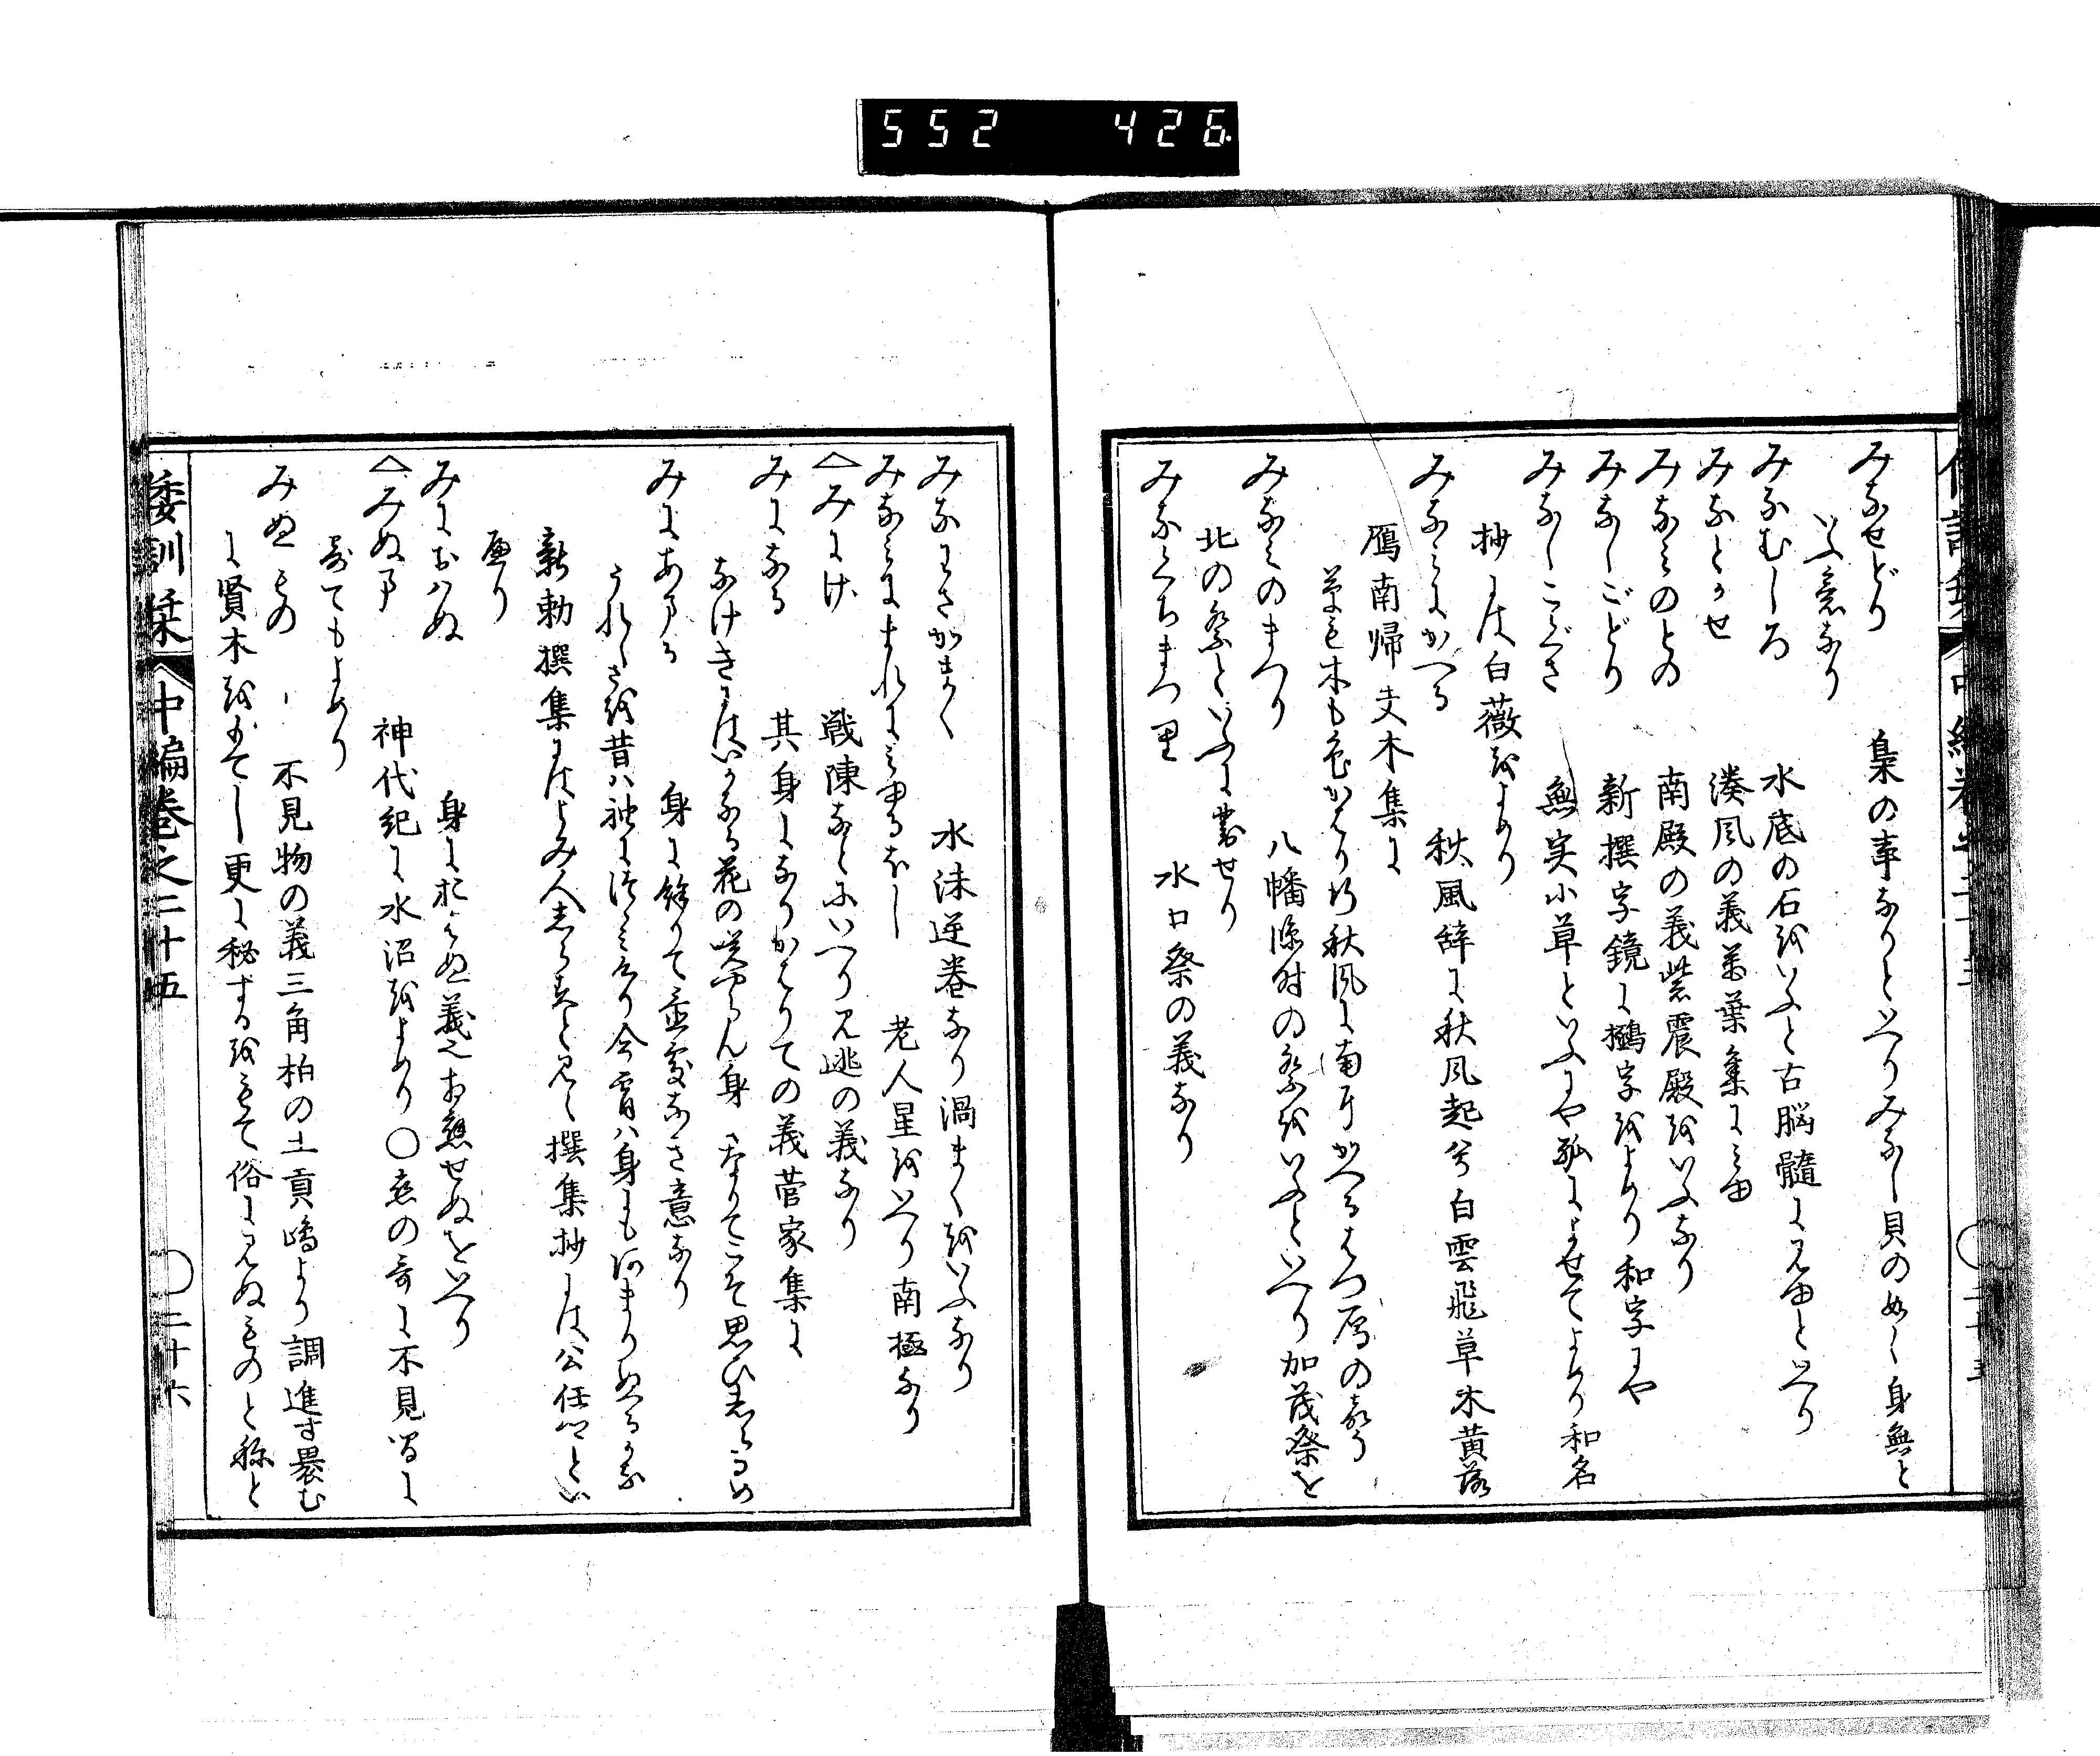 552 426
みなせどり 梟の事なりといへりみなし貝の如く身無と
いふ意なり
みなむしろ 水底の石をいふと古脳髄に見ゆといへり
みなとかせ 湊風の義万葉集にみゆ
みなみのとの 南殿の義紫震殿をいふなり
みなしごどり 新撰字鏡に字をよめり和字にや
みなしこぐさ 無実小草といふにや孤によせてよめり和名
抄には白薇をよめり
みなみにかへる 秋風辞に秋風起兮白雲飛草木黄落
雁南帰夫木集に
草も木も色かはり行秋風に南にかへるはつ雁の声
みなみのまつり 八幡臨時の祭をいふといへり加茂祭を
北の祭といふに対せり
みなくちまつ里 水口祭の義なり
みなわさかまく 水沫逆巻なり渦まくをいふなり
みなみにまれにみゆるほし 老人星をいへり南極なり
△みにけ 戦陳なとにいへり見逃の義なり
みになる 其身になりかはりての義菅家集に
なけきにはいかなる花の咲やらん身になりてこそ思ひしらるめ
みにあまる 身に餘りて並處なき意なり
うれしさを昔は袖につゝみけり今宵は身にもあまりぬるかな
新勅撰集にはよみ人しらすと見え撰集抄には公任卿とい
へり
みにおはぬ 身におはぬ義也お應せぬをいへり
△みぬま 神代紀に水沼をよめり○恋の哥に不見間に
寄てもよめり
みぬもの 不見物の義三角柏の土貢嶋より調進す畏む
に賢木をもてし更に秘するをもて俗にみぬものと称と
倭訓栞 中編巻之二十五 ○二十六